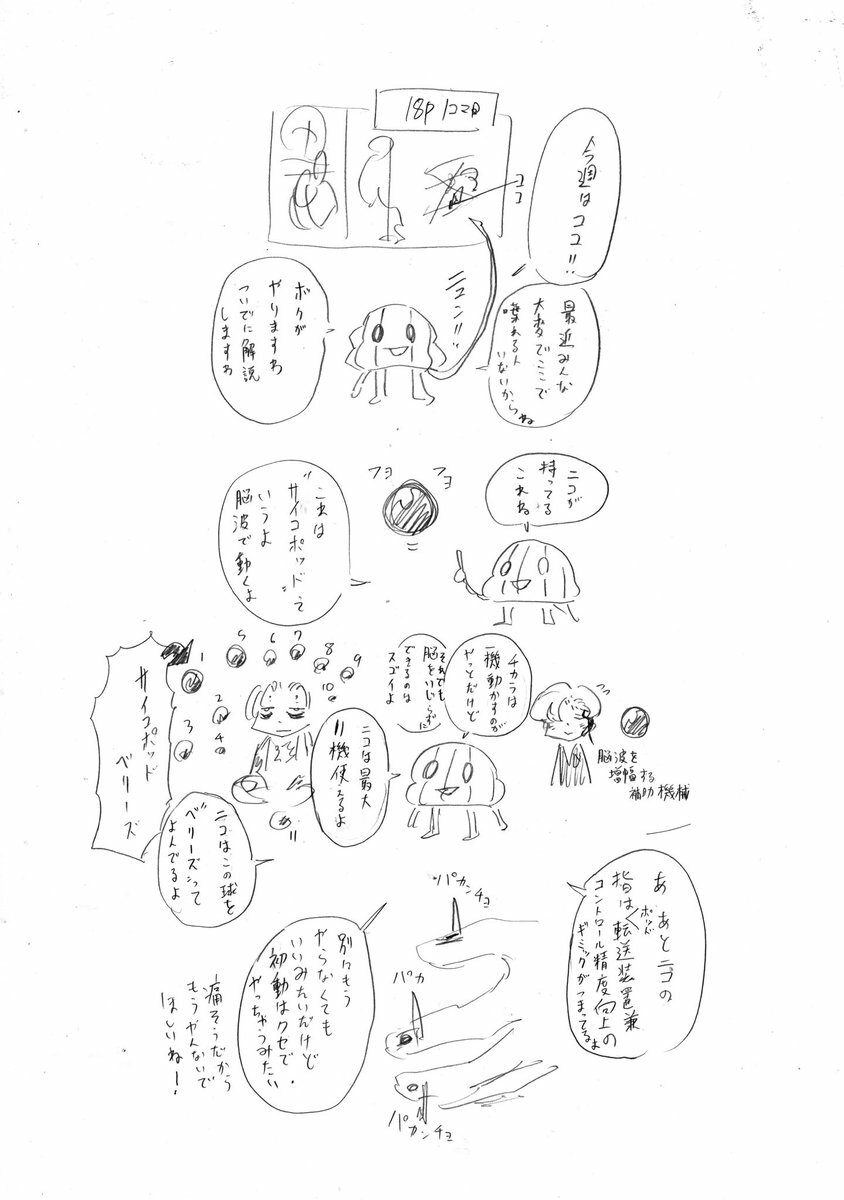 18P 1コマ目
ココ
今週はココ!!
最近みんな
大変でここで
喋れる人
いないからね
ニュン!!
ボクが
やりますわ
ついでに解説
しますわ
ニコが
持ってる
これね
フヨ
フヨ
これは
"サイコポッド"って
いうよ
脳波で動くよ
チカラは
一機動かすのが
やっとだけど
それでも
脳をいじらずに
できるのは
スゴイよ
脳波を
増幅する
補助機械
ニコは最大
11機使えるよ
1
2
3
4
5
6
7
8
9
10
11
サイコポッド
ベリーズ
ニコはこの球を
"ベリーズ"って
よんでるよ
あ あとニコの
指は転送装置兼
ポッド
コントロール精度向上の
ギミックがつまってるよ
パカンチョ
パカ
パカンチョ
別にもう
やらなくても
いいみたいだけど
初動はクセで
やっちゃうみたい
痛そうだから
もうやんないで
ほしいね!